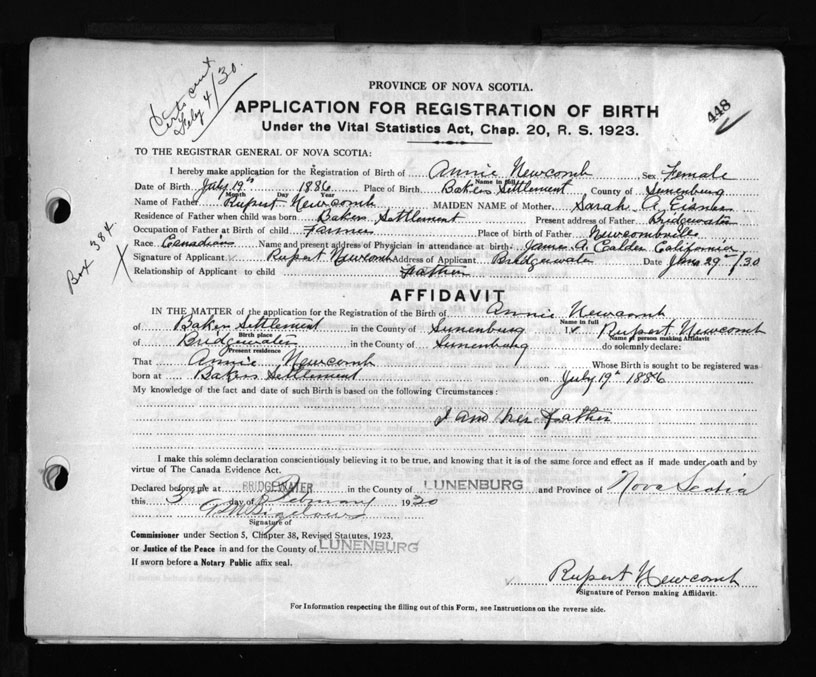 Certs sent
Feby 4/30.
448
Box 384
PROVINCE OF NOVA SCOTIA.
APPLICATION FOR REGISTRATION OF BIRTH
Under the Vital Statistics Act, Chap. 20, R. S. 1923.
TO THE REGISTRAR GENERAL OF NOVA SCOTIA:
I hereby make application for the Registration of Birth of Annie Newcomb Sex Female
Name in full
Date of Birth July 19th 1886 Place of Birth Bakers Settlement County of Lunenburg
Month Day Year
Name of Father Rupert Newcomb MAIDEN NAME of Mother Sarah A.
Residence of Father when child was born Bakers Settlement Present address of Father Bridgewater
Occupation of Father at Birth of child Farmer Place of birth of Father Newcombville
Race Canadian Name and present address of Physician in attendance at birth James A Calder California
Signature of Applicant Rupert Newcomb Address of Applicant Bridgewater Date Jan 29th/30
Relationship of Applicant to child Father
AFFIDAVIT
IN THE MATTER of the application for the Registration of the Birth of Annie Newcomb
Name in full
of Bakers Settlement in the County of Lunenburg I, Rupert Newcomb
Birth place Name of person making Affidavit
of Bridgewater in the County of Lunenburg do solemnly declare:
Present residence
That Annie Newcomb Whose Birth is sought to be registered was
born at Bakers Settlement on July 19th 1886
My knowledge of the fact and date of such Birth is based on the following Circumstances:
I am her Father
I make this solemn declaration conscientiously believing it to be true, and knowing that it is of the same force and effect as if made under oath and by
virtue of The Canada Evidence Act.
Declared before me at BRIDGEWATER in the County of LUNENBURG and Province of Nova Scotia
this 3 day of February 1930
Signature of
Commissioner under Section 5, Chapter 38, Revised Statutes, 1923,
or Justice of the Peace in and for the County of LUNENBURG
If sworn before a Notary Public affix seal.
Rupert Newcomb
Signature of Person making Affidavit.
For Information respecting the filling out of this Form, see Instructions on the reverse side.